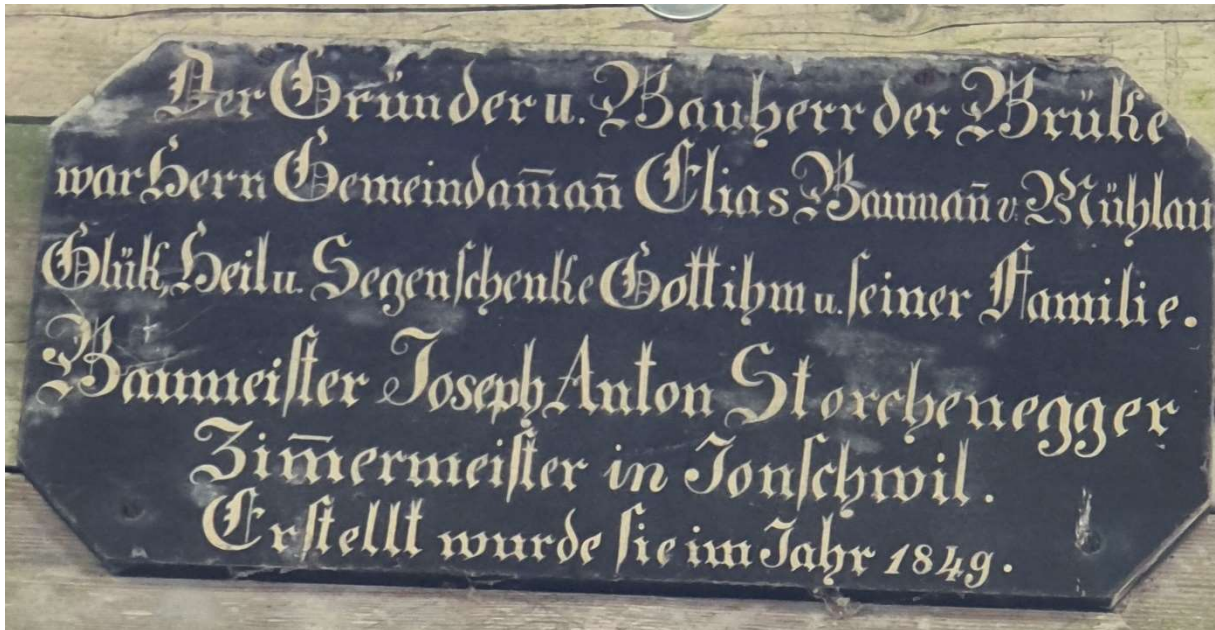 Der Gründer u. Bauherr der Brüke,
war Herr Gemeindam̄an̄ Elias Bauman̄ v. Mühlau
Glük, Heil u. Segen schenke Gott ihm u. seiner Familie.
Baumeister Joseph Anton Storchenegger
Zim̄ermeister in Jonschwil.
Erstellt wurde sie im Jahr 1849.